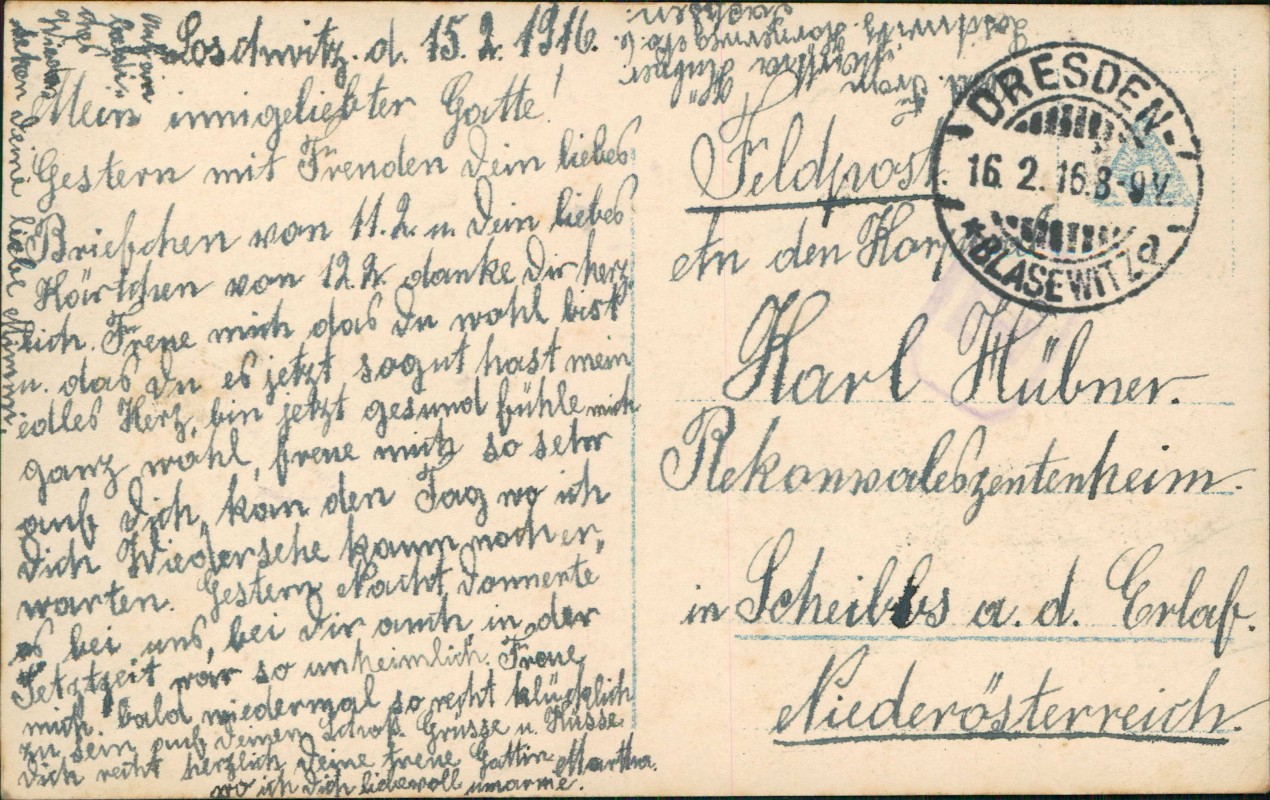 Loschwitz. d. 15. 2. 1916.
Mein innigeliebter Gatte!
Gestern mit Freuden Dein liebes
Briefchen von 11. 2. u. Dein liebes
Kärtchen von 12. 2. danke Dir herz
lich. Freue mich das Du wohl bist
u. das Du es jetzt sogut hast mein
edles Herz, bin jetzt gesund fühle mich
ganz wohl, freue mich so sehr
auf Dich, kan den Tag wo ich
Dich Wiedersehe kaum noch er,
warten. Gestern Nacht, donnerte
es bei uns, bei Dir auch, in der
Jetztzeit war so unheimlich. Freue
mich bald wiedermal so recht klücklich
zu sein auf Deinen Schoß. Grüsse u. Küsse
Dich recht herzlich Deine treue Gattin Martha.
wo ich Dich liebevoll umarme.
Auf ein
baldi
ges
Wieder
sehen Deine liebe Mimmi
Frau Martha Hübner
Loschwitz
Sachsen.
Feldpost.
An den
Karl Hübner.
Rekonvaleszentenheim.
in Scheibbs a. d. Erlaf.
Niederösterreich.
DRESDEN-
16. 2. 16. 8-9V.
*BLASEWITZ a